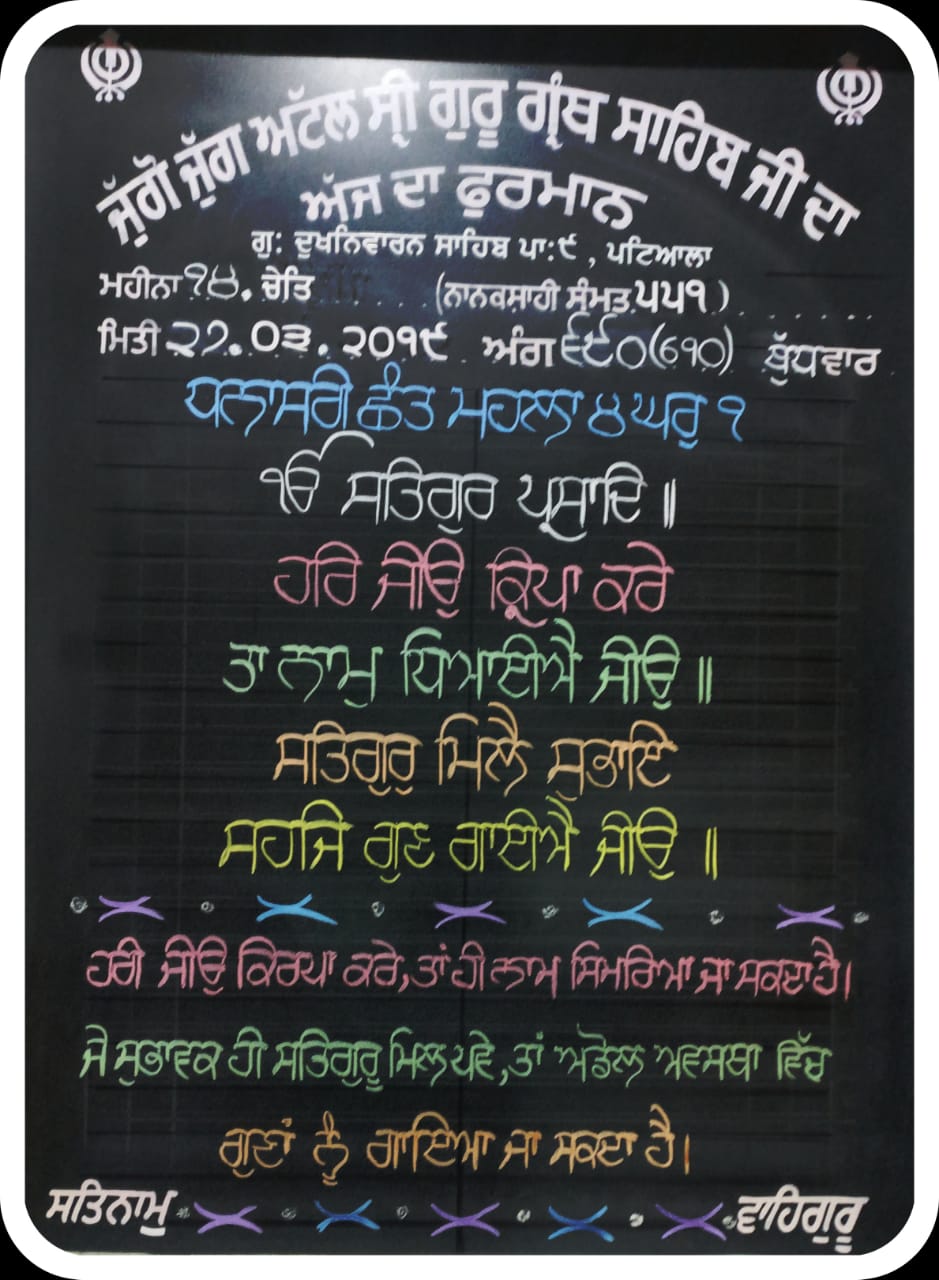 ਜੁੱਗੋ ਜੁੱਗ ਅਟੱਲ ਸ੍ਰੀ ਗੁਰੂ ਗ੍ਰੰਥ ਸਾਹਿਬ ਜੀ ਦਾ
ਅੱਜ ਦਾ ਫੁਰਮਾਨ
ਗੁ: ਦੁਖਨਿਵਾਰਨ ਸਾਹਿਬ ਪਾ:੯ , ਪਟਿਆਲਾ
ਮਹੀਨਾ ੧੪. ਚੇਤਿ (ਨਾਨਕਸਾਹੀ ਸੰਮਤ ੫੫੧)
ਮਿਤੀ ੨੭.੦੩.੨੦੧੯ ਅੰਗ ੬੯੦(690) ਬੁੱਧਵਾਰ
ਧਨਾਸਰੀ ਛੰਤ ਮਹਲਾ ੪ ਘਰੁ ੧
ੴ ਸਤਿਗੁਰ ਪ੍ਰਸਾਦਿ ॥
ਹਰਿ ਜੀਉ ਕ੍ਰਿਪਾ ਕਰੇ
ਤਾ ਨਾਮੁ ਧਿਆਈਐ ਜੀਉ ॥
ਸਤਿਗੁਰੁ ਮਿਲੈ ਸੁਭਾਇ
ਸਹਜਿ ਗੁਣ ਗਾਈਐ ਜੀਉ ॥
ਹਰੀ ਜੀਉ ਕਿਰਪਾ ਕਰੇ, ਤਾਂ ਹੀ ਨਾਮ ਸਿਮਰਿਆ ਜਾ ਸਕਦਾ ਹੈ।
ਜੇ ਸੁਭਾਵਕ ਹੀ ਸਤਿਗੁਰੂ ਮਿਲ ਪਵੇ, ਤਾਂ ਅਡੋਲ ਅਵਸਥਾ ਵਿੱਚ
ਗੁਣਾਂ ਨੂੰ ਗਾਇਆ ਜਾ ਸਕਦਾ ਹੈ।
ਸਤਿਨਾਮੁ ਵਾਹਿਗੁਰੂ